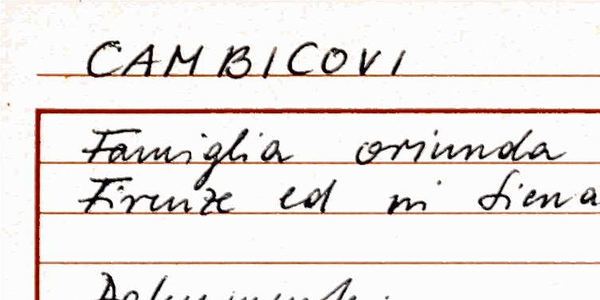 CAMBICOVI
Famiglia oriunda
Firenze ed in Siena